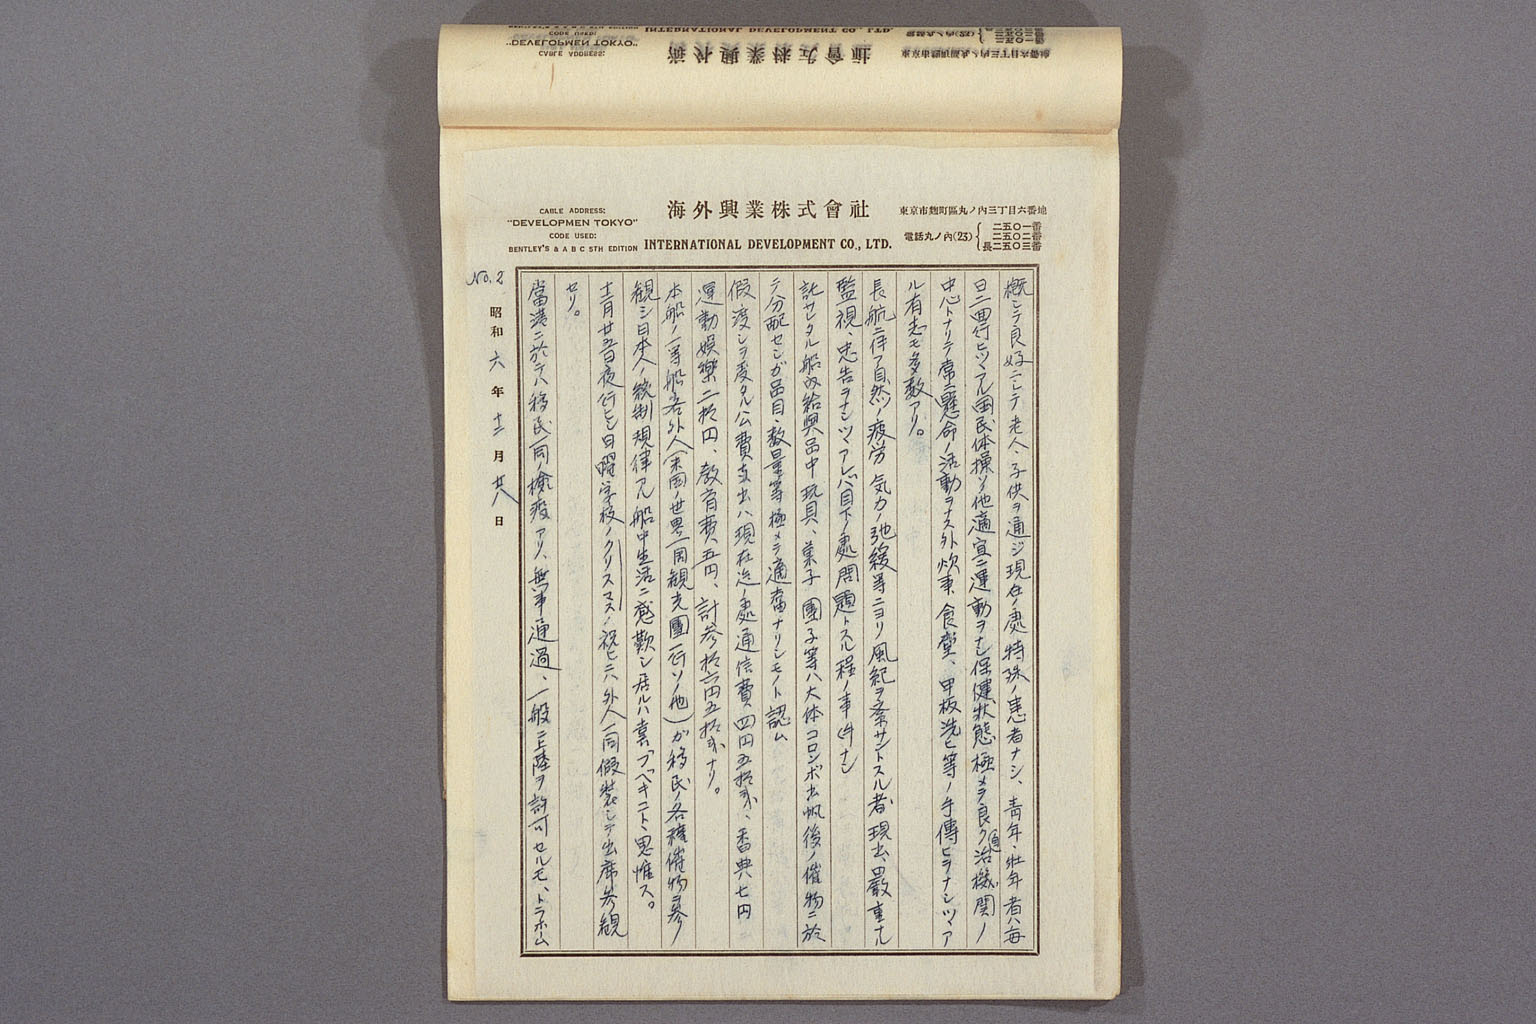 CABLE ADDRESS:
"DEVELOPMEN TOKYO"
CODE USED:
BENTLEY'S & A B C 5TH EDITION
海外興業株式會社
INTERNATIONAL DEVELOPMENT CO., LTD.
東京市麹町區丸ノ内三丁目六番地
電話丸ノ内(23)
二五〇一番
二五〇二番
長二五〇三番
概シテ良好ニシテ老人、子供ヲ通ジ現在ノ處特殊ノ患者ナシ、青年、壮年者ハ毎
日二回行ヒツヽアル国民体操ソノ他適宜ニ運動ヲナシ保健状態極メテ良ク自治機関ノ
中心トナリテ常ニ懸命ノ活動ヲナス外炊事、食堂、甲板洗ヒ等ノ手傳ヒヲナシツヽア
ル有志モ多数アリ。
長航ニ伴フ自然ノ疲労 気力ノ弛緩等ニヨリ風紀ヲ紊サントスル者現出、嚴重ナル
監視、忠告ヲナシツヽアレバ目下ノ處問題トスル程ノ事件ナシ
託サレタル船内給與品中玩具、菓子 團子等ハ大体コロンボ出帆後ノ催物ニ於
テ分配センガ品目、数量等極メテ適當ナリシモノト認ム
假渡シヲ受タル公費支出ハ現在迄ノ處通信費四円五拾錢、香典七円ニ
運動娯樂二拾円、教育費五円、計参拾六円五拾錢ナリ。
本船ノ一等船客外人(米国ノ世界一周観光團一行ソノ他)ガ移民ノ各種催物ヲ参ノ
観シ日本人ノ統制規律アル船中生活ニ感歎シ居ルハ喜ブベキコト、思惟ス。
十二月廿五日夜行ヒシ日曜学校ノクリスマスノ祝ヒニハ外人一同假装シテ出席参観
セリ。
當港ニ於テハ移民一同ノ検疫アリ、無事通過、一般ニ上陸ヲ許可セルモ、トラホム
No. 2
昭和六年十二月廿八日